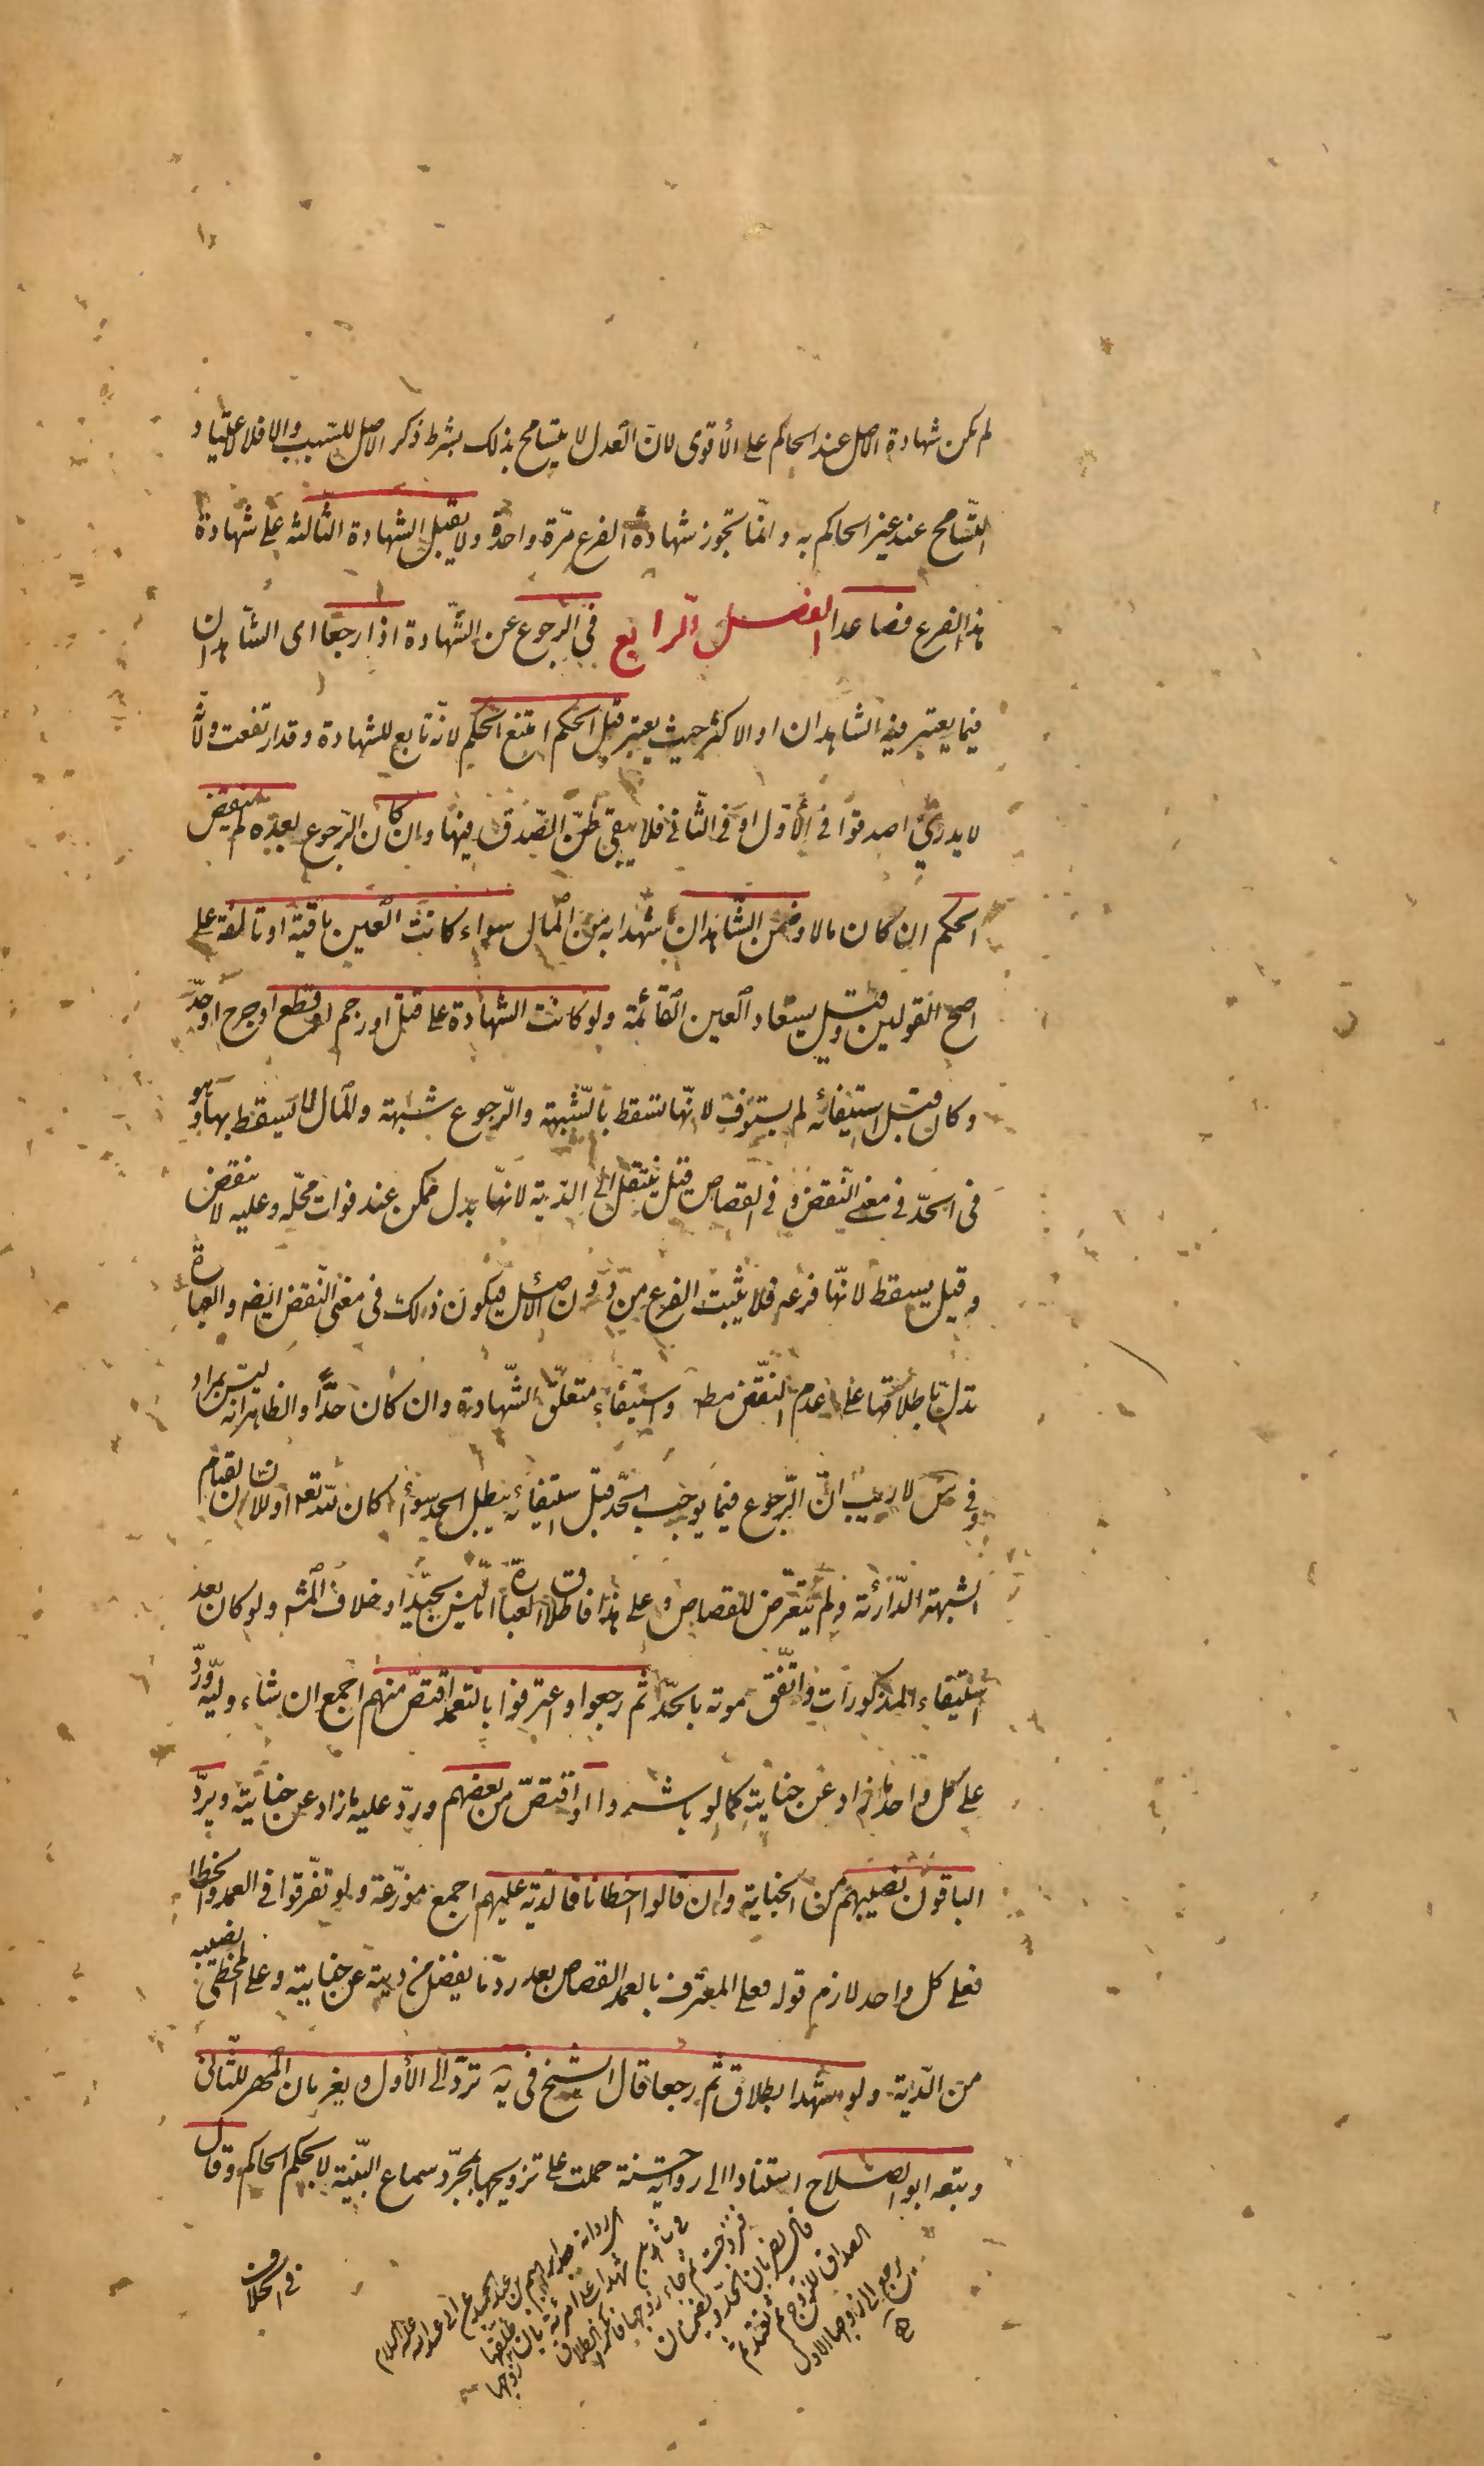 لم يكن شهادة الاصل عند الحاكم على الأقوى لانّ العدل لا يتسامح بذلك بشرط ذكر الاصل للسبب والا فلا لاعتياد
التّسامح عند غير الحاكم به وانّما تجوز شهادة الفرع مرّة واحدة ولا يقبل الشهادة الثالثة على شهادة
هذا الفرع فصاعدا الفصل الرابع في الرجوع عن الشّهادة اذا رجعا اى الشّاهدان
فيما يعتبر فيه الشاهدان او الاكثر حيث يعتبر قبل الحكم امتنع الحكم لانّه تابع للشهادة وقد ارتفعت ولانّه
لا يدرى اصدقوا في الأوّل او في الثّاني فلا يبقى ظنّ الصّدق فيها وان كان الرّجوع بعده لم ينقض
الحكم ان كان مالا وضمن الشّاهدان ما شهدا به من المال سواء كانت العين باقية او تالفة على
اصح القولين وقيل يستعاد العين القائمة ولو كانت الشهادة على قتل او رجم او قطع او جرح او حدّ
وكان قبل استيفائه لم يستوف لانّها تسقط بالشّبهة والرّجوع شبهة والمال لا يسقط بها وهو
فى الحدّ في معنى النّقض وفى القصاص قيل ينتقل الى الدّية لانّها بدل ممكن عند فوات محلّه وعليه لا ينقض
وقيل يسقط لانّها فرعه فلا يثبت الفرع من دون الاصل فيكون ذلك فى معنى النّقض ايضه والعبارة
تدلّ باطلاقها على عدم النّقض مطه واستيفاء متعلّق الشّهادة وان كان حدّا والظاهر انه ليس بمراد
وفي س لا ريب انّ الرّجوع فيما يوجب الحدّ قبل استيفائه يبطل الحد سواء كان لله تعه او للانسان لقيام
الشبهة الدّارئة ولم يتعرّض للقصاص وعلى هذا فاطلاق العبارة امّا ليس بجيّد او خلاف المشه ولو كان بعد
استيفاء المذكورات واتّفق موته بالحدّ ثم رجعوا واعترفوا بالتعمد اقتصّ منهم اجمع ان شاء وليّه وردّ
على كل واحد ما زاد عن جنايته كما لو باشروا او اقتصّ من بعضهم وردّ عليه ما زاد عن جنايته ويردّ
الباقون نصيبهم من الجناية وان قالوا اخطانا فالدّية عليهم اجمع موزّعة ولو تفرّقوا في العمد والخطا
فعلى كل واحد لازم قوله فعلى المعترف بالعمد القصاص بعد ردّ ما يفضل من ديته عن جنايته وعلى المخطى نصيبه
من الدّية ولو شهدا بطلاق ثم رجعا قال الشيخ فى ية تردّ الى الأول ويغرمان المهر للثّانى
وتبعه ابو الصلاح استنادا الى رواية حسنة حملت على تزويجها بمجرّد سماع البيّنة لا بحكم الحاكم وقال
في الخلاف
الرواية عن ابراهيم بن عبد الحميد عن ابى عبد الله عليه السلام
فى شاهدين شهدا على امرئة بان زوجها طلقها
فتزوجت ثم جاء زوجها فانكر الطلاق
قال يضربان الحدّ ويضمنان
الصداق للزوج ثم تعتد ثم
ترجع الى زوجها الاول